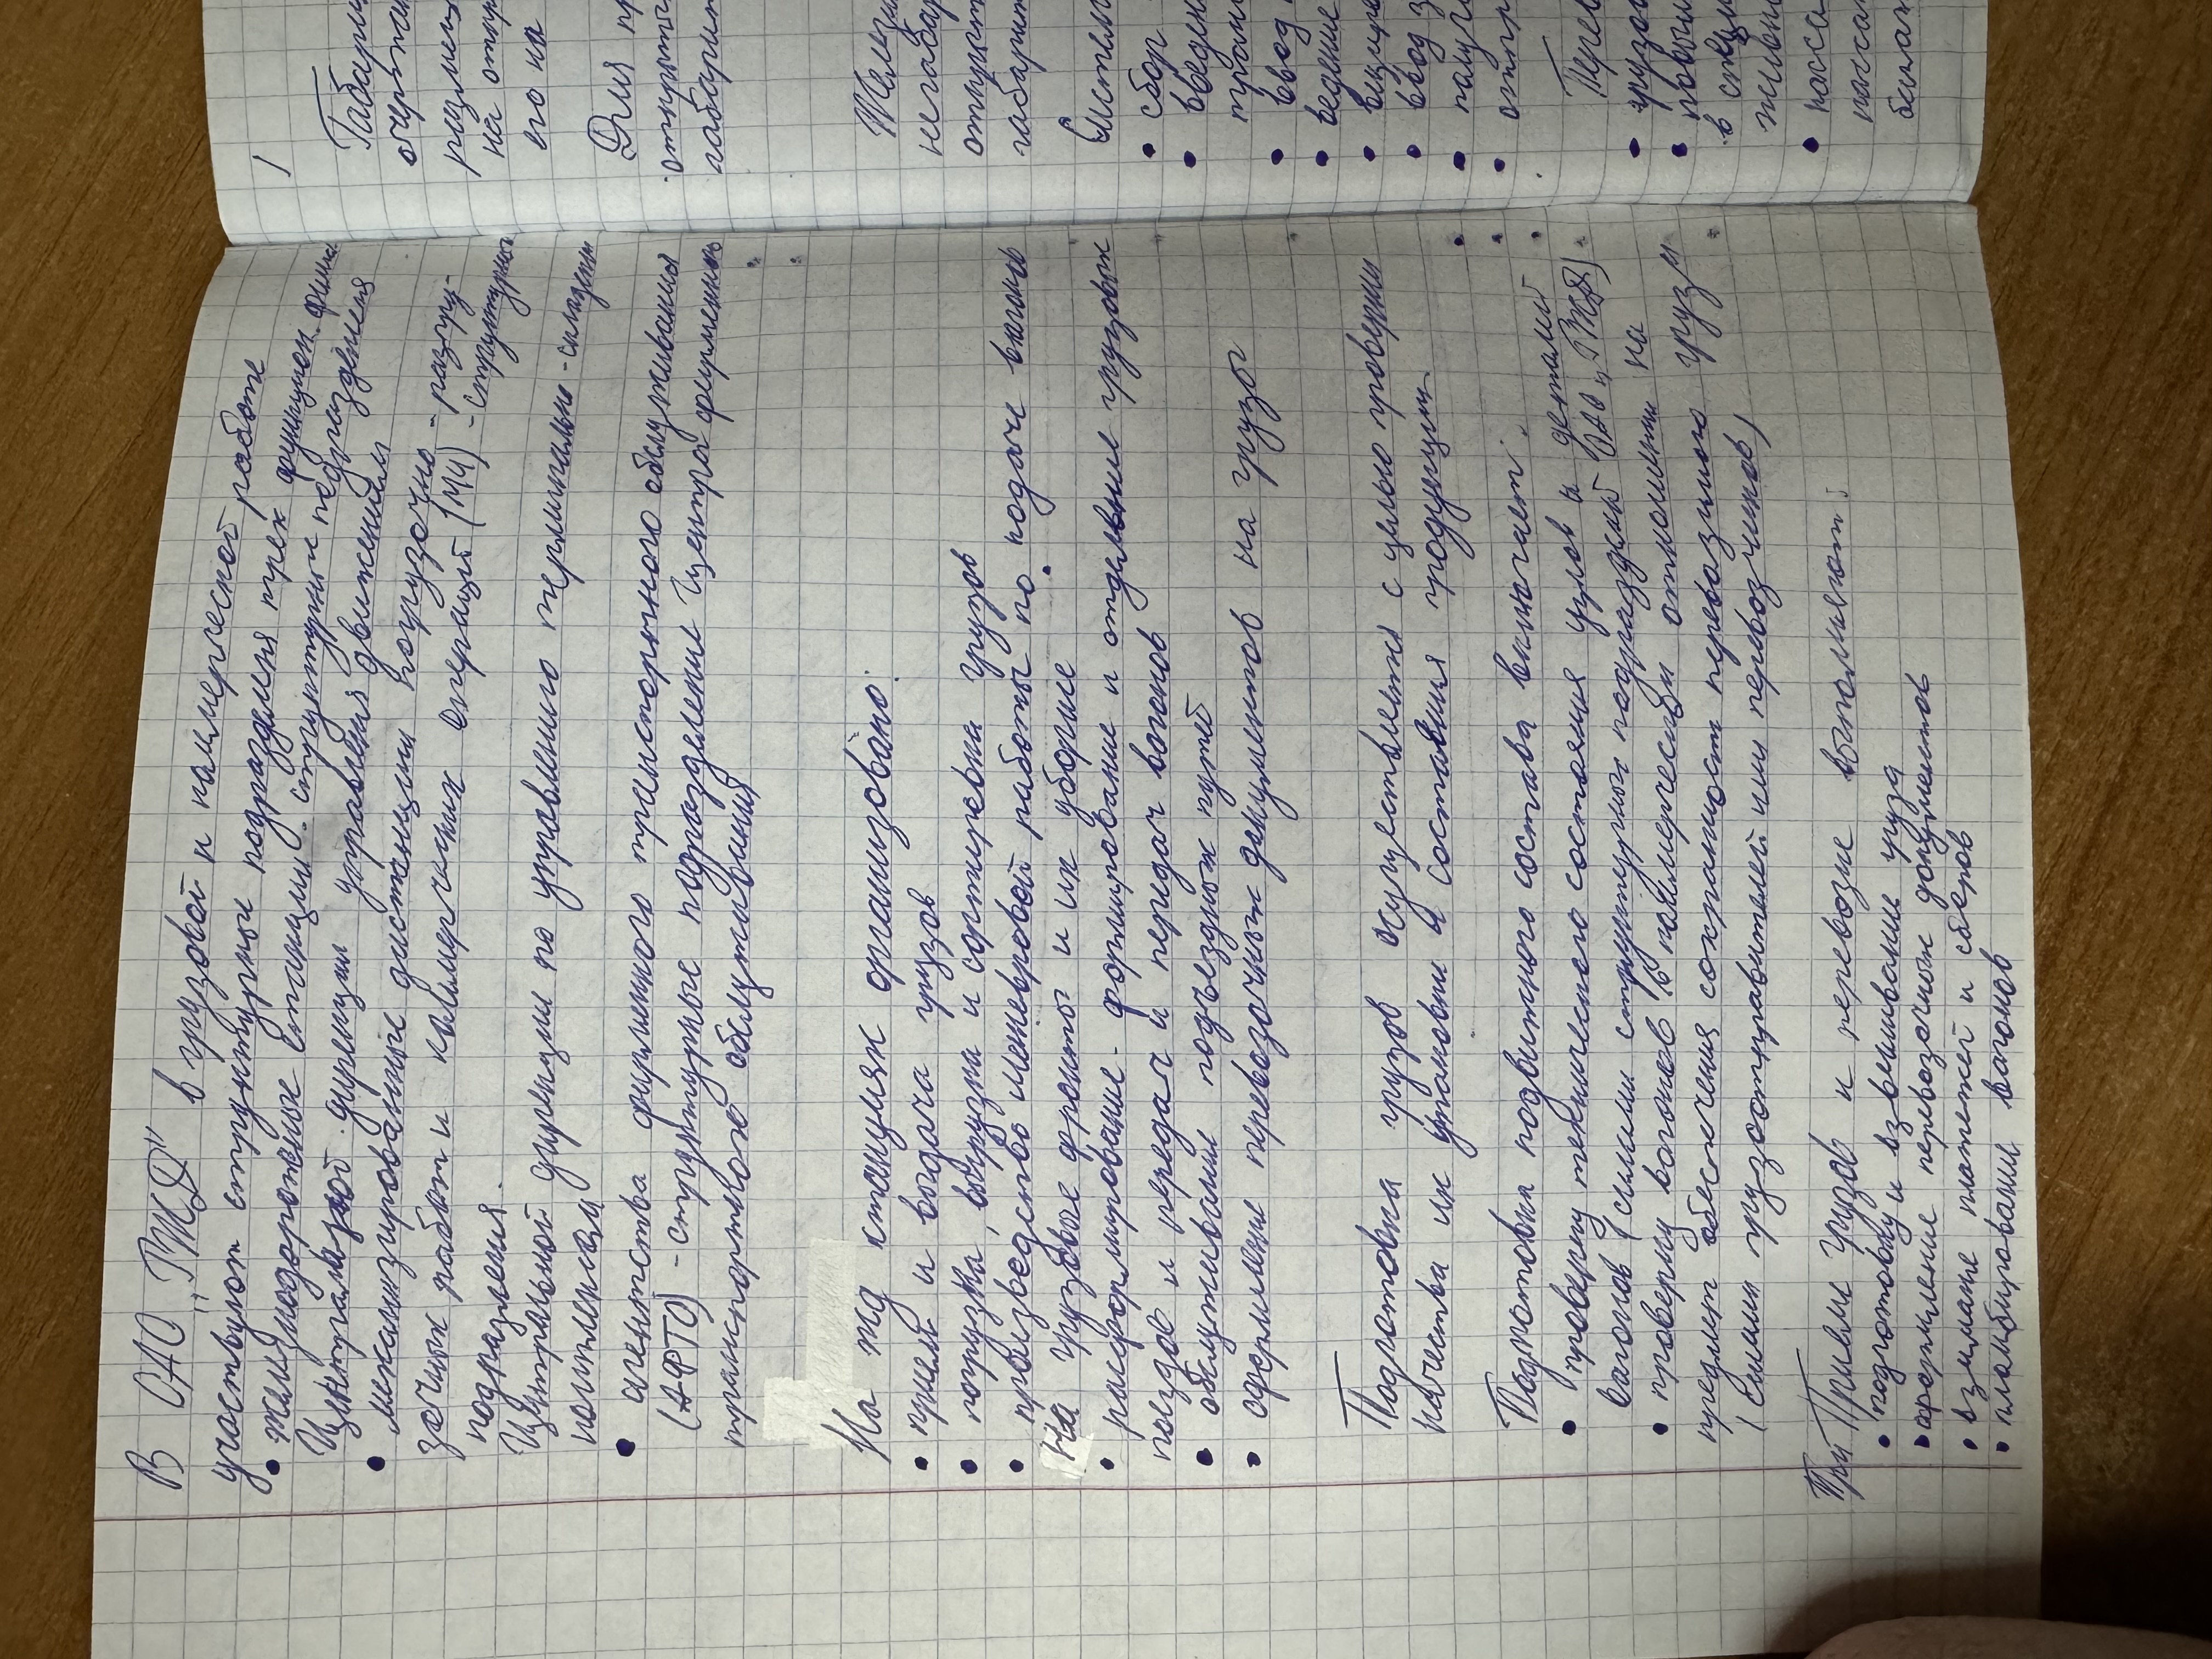 В ОАО "РЖД" в грузовой и коммерческой работе
участвуют структурные подразделия трех функцион. филиа
• железнодорожные станции. структурные подразделения
Центральной дирекции управления движением
• механизированные дистанции погрузочно-разгру-
зочных работ и коммерческих операций (МЧ) - структурного
подразления
Центральной дирекции по управлению терминально-складски
комплексом
• агентства фирменного транспортного обслуживания
(АФТО) - структурные подразделение Центра фирменны
транспортного обслуживания
На жд станциях организовано:
• прием и выдача грузов
• погрузка, выгрузка и сортировка грузов
• произведство маневровой работы по подаче вагоны
на грузовые фронты и их уборке
• расформирование-формирование и отдельные грузовых
поездов и передач и передач вагонов
• обслуживание подъездных путей
• оформление перевозочных документов на грузы
Подготовка грузов осуществлятя с целью проверки
качества их упаковки и составния продукции
Подготовка подвижного состава включает:
• проверку технического состояния узлов и деталей
вагонов (силами структурного подразделений ОАО "РЖД")
• проверку вагонов в коммерческом отношении на
предмет обеспечения сохранност перевозимого груза
(силами грузоотправителей или перевозчиков)
При Приеме грузов к перевозке выполняют:
• подготовку и взвешивание груза
• оформление перевозочных документов
• взимание платежей и сборов
• пломбирование вагонов
1
Габари
очертан
размещ
на откр
его на
Для пр
открыто
габарит
негабар
открыт
габарит
Систем
• сбор
• введен
• ввод
• ввод з
Перев
• грузо
• повыш
в спец
живн
• масса